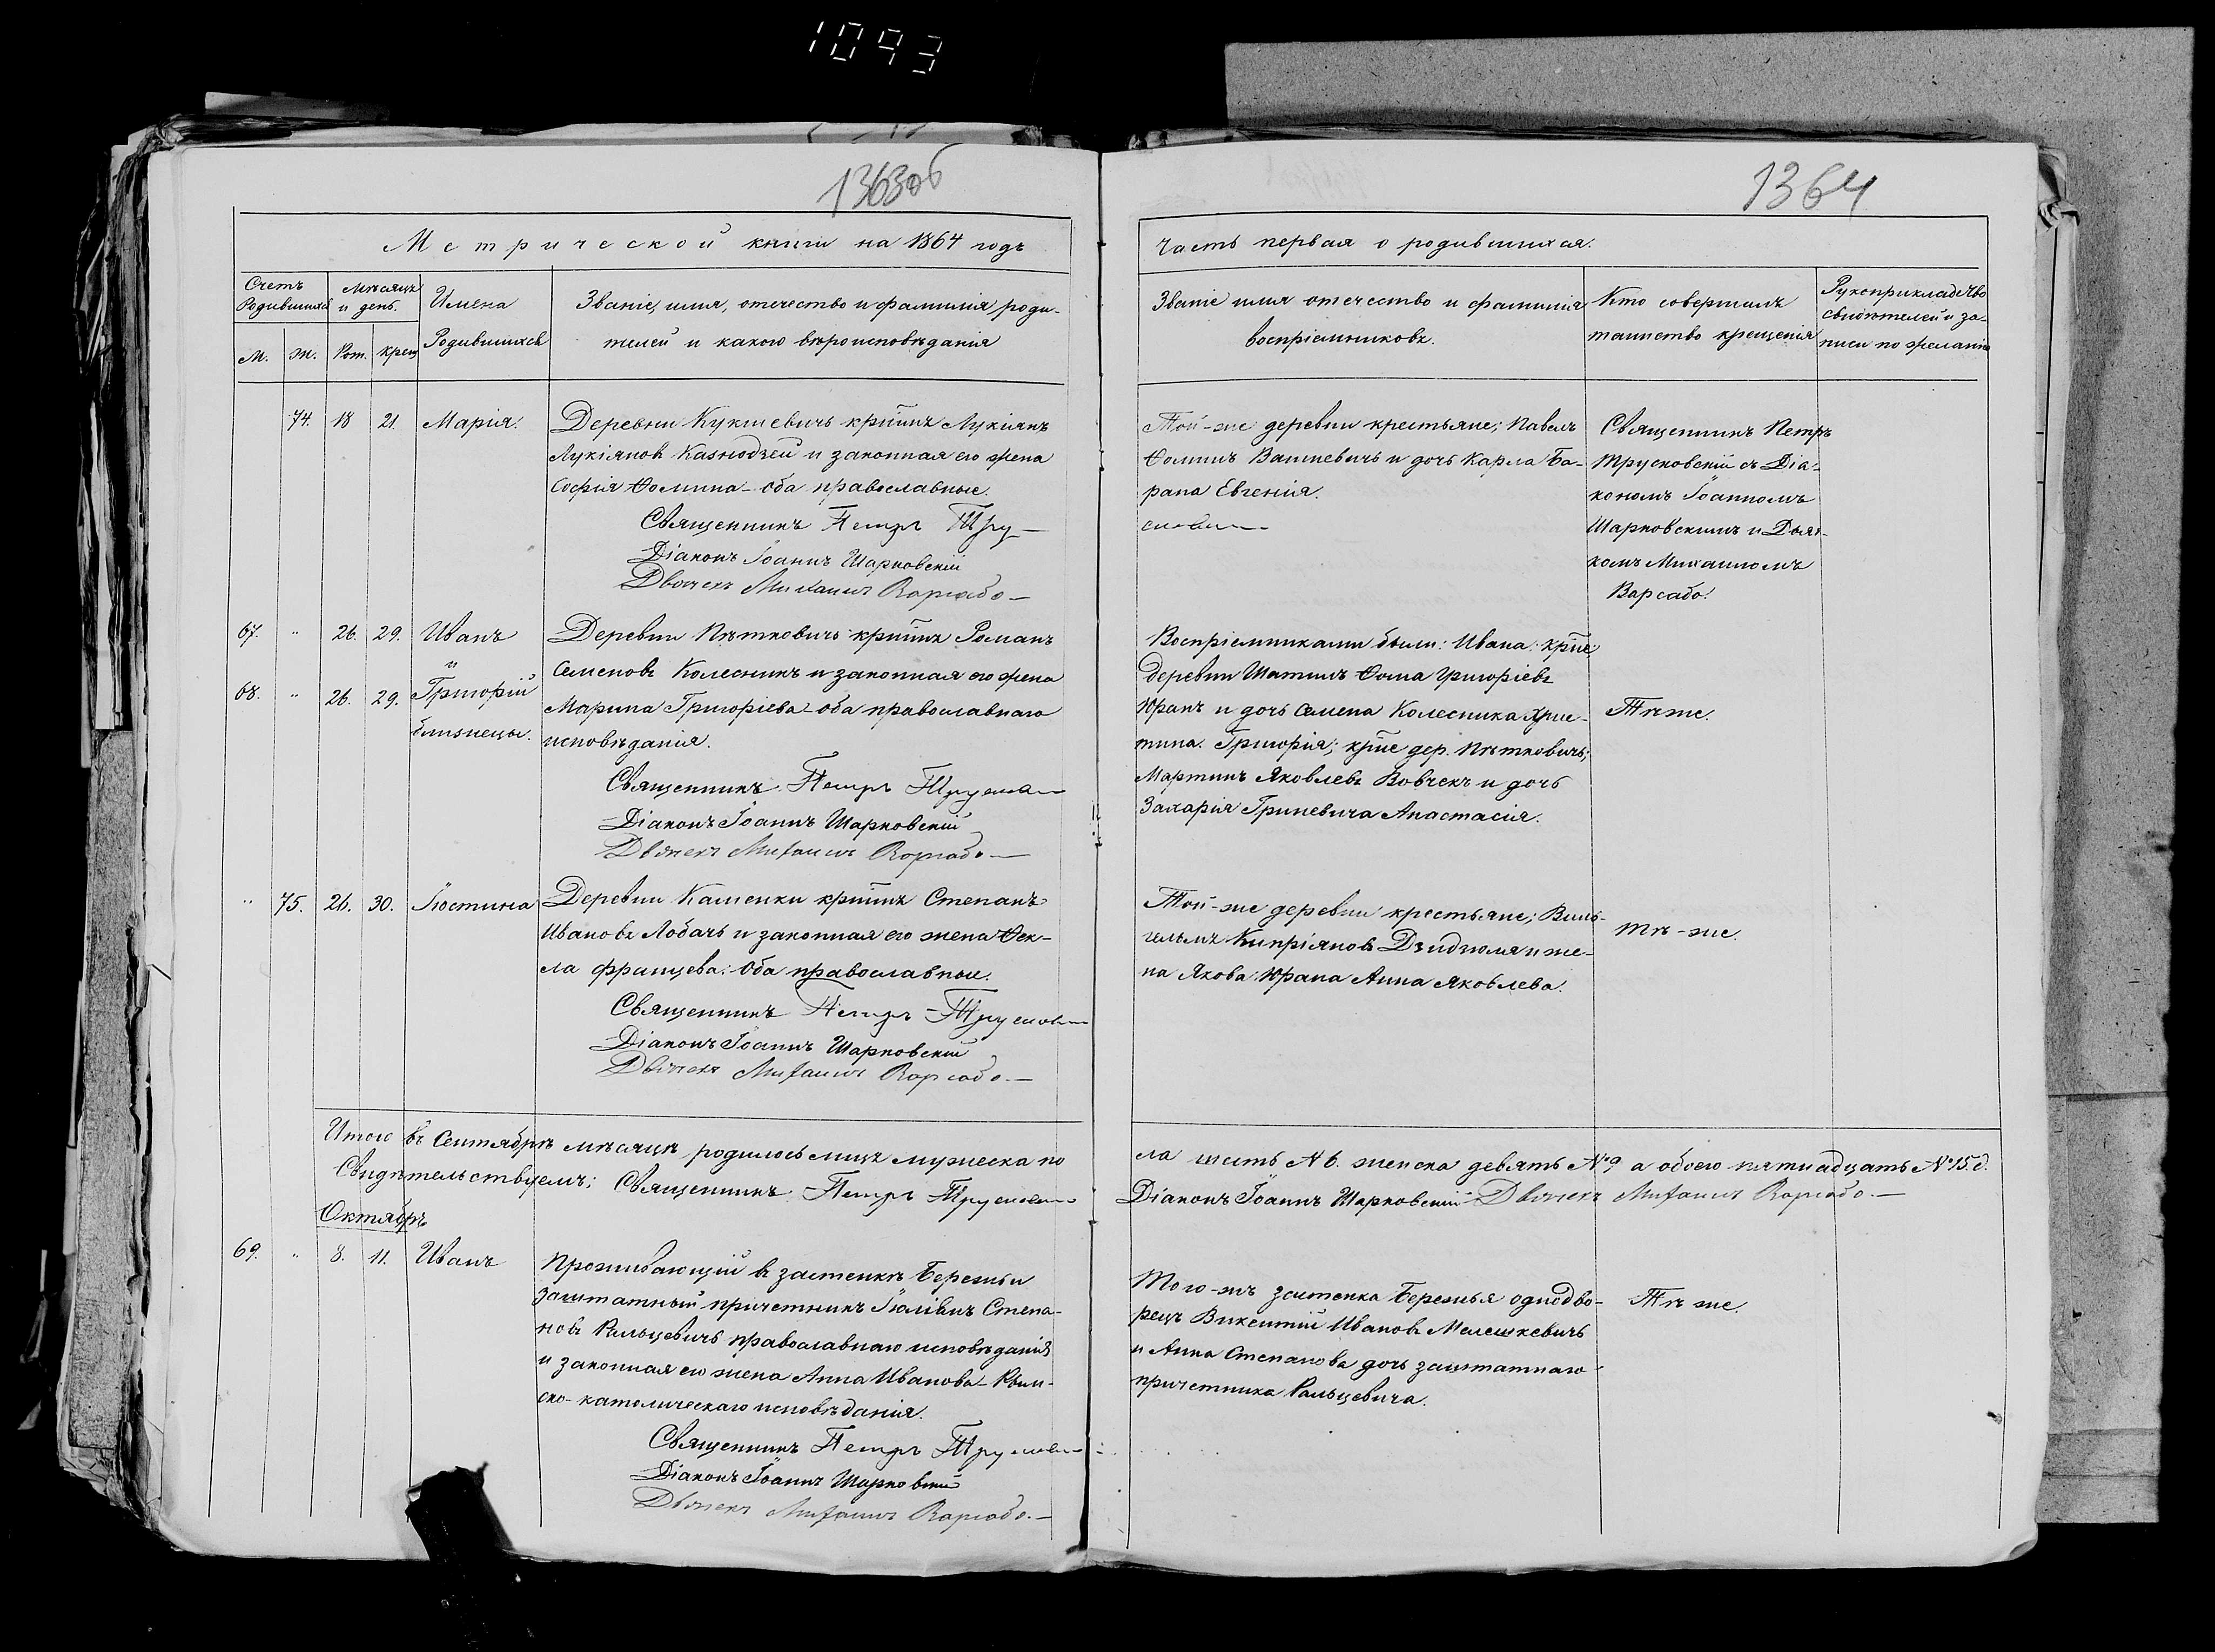 1093
1363об
Метрической книги на 1864 годъ
Счетъ Родившихся
Мѣсяцъ и день.
Имена Родившихся
Званіе, имя, отечество и фамилія роди-
телей и какого вѣроисповѣданія
М. Ж. Рож. крещ
74. 18 21. Марія.
Деревни Кукшевичь кр͠нинъ Лукіянъ
Лукіяновъ Казнодзей и законная его жена
Софія Ѳомина – оба православные.
Священникъ Петръ
Діаконъ Іоаннъ Шарковскій
Дьячекъ Михаилъ Варсабо –
67. " 26. 29. Иванъ
и
68. " 26. 29. Григорій
близнецы.
Деревни Пѣтковичь кр͠нинъ Романъ
Семеновъ Колесникъ и законная его жена
Марина Григоріева – оба православнаго
исповѣданія.
Священникъ Петръ
Діаконъ Іоаннъ Шарковскій
Дьячекъ Михаилъ Варсабо –
" 75. 26. 30. Іюстина
Деревни Каменки кр͠нинъ Степанъ
Ивановъ Лобачь и законная его жена Ѳек-
ла францева: Оба православные.
Священникъ Петръ
Діаконъ Іоаннъ Шарковскій
Дьячекъ Михаилъ Варсабо. –
Итого въ Сентябрѣ мѣсяцѣ родилось лицъ мужеска по
Свидѣтельствуемъ; Священникъ Петръ
Октябрь
69. " 8. 11. Иванъ
Проживающій въ застенкѣ Бережьи
Заштатный причетникъ Степа-
новъ Ральцевичъ православнаго исповѣданія
и законная его жена Анна Иванова – Рим-
ско-католическаго исповѣданія.
Священникъ Петръ
Діаконъ Іоаннъ Шарковскій
Дьячекъ Михаилъ Варсабо. –
1364
часть первая о родившихся.
Званіе имя отечество и фамилія
воспріемниковъ.
Кто совершалъ
таинство крещенія
Рукоприкладство
свидѣтелей и за-
писи по желанію
Той-же деревни крестьяне; Павелъ
Ѳоминъ Вашкевичь и дочь Карла Ба-
рана Евгенія.
Священникъ Петръ
Трусковскій съ Діа-
кономъ Іоанномъ
Шарковскимъ и Дьяч-
комъ Михаиломъ
Варсабо.
Воспріемниками были: Ивана: кр͠не
деревни Шатилъ Ѳома Григоріевъ
Юранъ и дочь Семена Колесника Хрис-
тина. Григорія; кр͠не дер. Пѣтковичь;
Мартинъ Яковлевъ Вовчекъ и дочь
Захарія Гриневича Анастасія.
Тѣже.
Той-же деревни крестьяне; Виль-
гельмъ Кипріяновъ Дзидзюля и же-
на Якова Юрана Анна Яковлева.
Тѣ-же.
ла шесть №6. женска девять №9, а обоего пятнадцать №15.д.
Діаконъ Іоаннъ Шарковскій Дьячекъ Михаилъ Варсабо. –
Того-жъ застенка Бережья однодво-
рецъ Викентій Ивановъ Мелешкевичь
и Анна Степанова дочь заштатнаго
причетника Ральцевича.
Тѣ же.